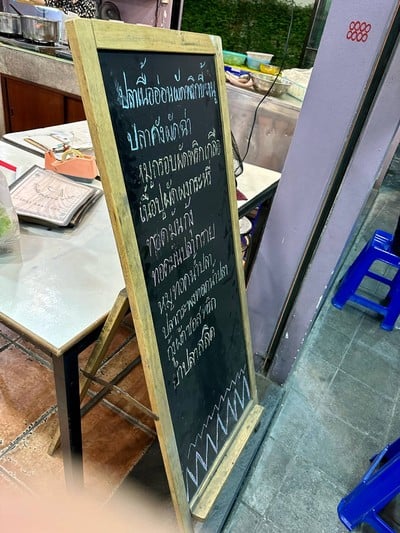 ปลาเนื้ออ่อนผัดพริกขี้หนู
ปลาคังผัดฉ่า
หมูกรอบผัดพริกเกลือ
เนื้อปูผัดผงกะหรี่
ทอดมันกุ้ง
ทอดมันปลากราย
หมูทอดน้ำปลา
ปลากะพงทอดน้ำปลา
กุ้งผัดซอส
ยำปลาสลิด